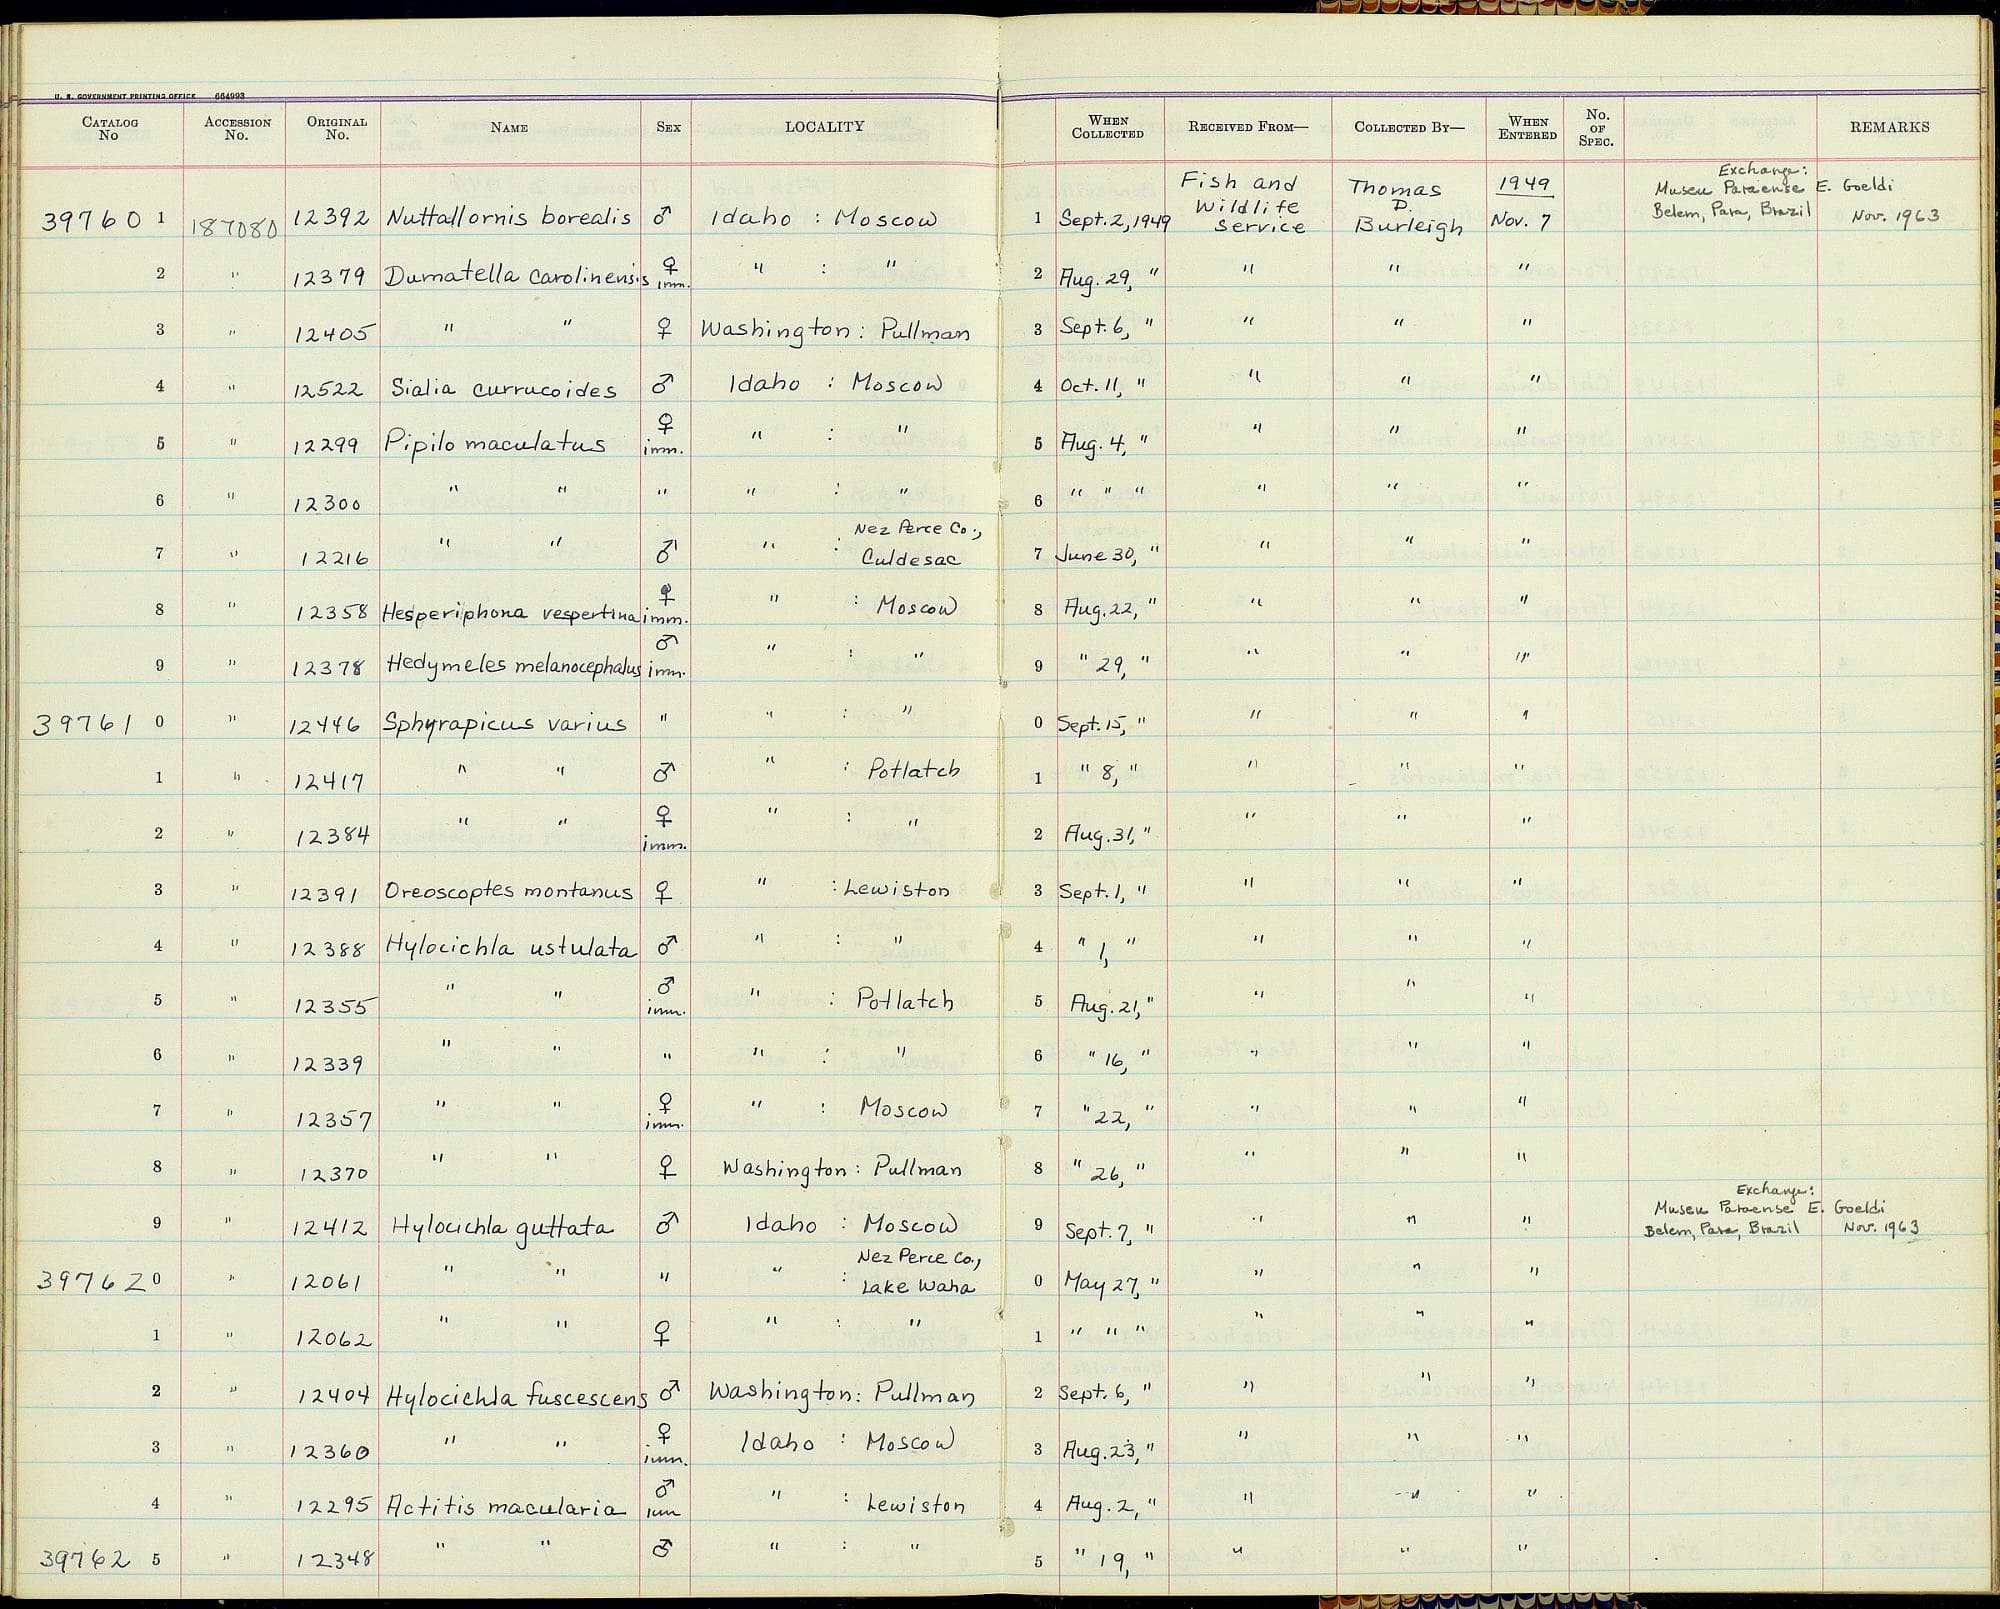 U. S. GOVERNMENT PRINTING OFFICE 664993
CATALOG No ACCESSION No. ORIGINAL No. NAME SEX LOCALITY WHEN COLLECTED RECEIVED FROM— COLLECTED BY— WHEN ENTERED No. OF SPEC. REMARKS
39760 1 187080 12392 Nuttallornis borealis ♂ Idaho : Moscow 1 Sept. 2, 1949 Fish and Wildlife Service Thomas D. Burleigh 1949 Nov. 7 Exchange: Museu Paraense E. Goeldi Belem, Para, Brazil Nov. 1963
2 " 12379 Dumatella carolinensis ♀ imm. " : " 2 Aug. 29, " " " "
3 " 12405 " " ♀ Washington : Pullman 3 Sept. 6, " " " "
4 " 12522 Sialia currucoides ♂ Idaho : Moscow 4 Oct. 11, " " " "
5 " 12299 Pipilo maculatus ♀ imm. " : " 5 Aug. 4, " " " "
6 " 12300 " " " " : " 6 " " " " " "
7 " 12216 " " ♂ " : Nez Perce Co., Culdesac 7 June 30, " " " "
8 " 12358 Hesperiphona vespertina ♀ imm. " : Moscow 8 Aug. 22, " " " "
9 " 12378 Hedymeles melanocephalus ♂ imm. " : " 9 " 29, " " " "
39761 0 " 12446 Sphyrapicus varius " " : " 0 Sept. 15, " " " "
1 " 12417 " " ♂ " : Potlatch 1 " 8, " " " "
2 " 12384 " " ♀ imm. " : " 2 Aug. 31, " " " "
3 " 12391 Oreoscoptes montanus ♀ " : Lewiston 3 Sept. 1, " " " "
4 " 12388 Hylocichla ustulata ♂ " : " 4 " 1, " " " "
5 " 12355 " " ♂ imm. " : Potlatch 5 Aug. 21, " " " "
6 " 12339 " " " " : " 6 " 16, " " " "
7 " 12357 " " ♀ imm. " : Moscow 7 " 22, " " " "
8 " 12370 " " ♀ Washington : Pullman 8 " 26, " " " "
9 " 12412 Hylocichla guttata ♂ Idaho : Moscow 9 Sept. 7, " " " " Exchange: Museu Paraense E. Goeldi Belem, Para, Brazil Nov. 1963
39762 0 " 12061 " " " " : Nez Perce Co., Lake Waha 0 May 27, " " " "
1 " 12062 " " ♀ " : " 1 " " " " " "
2 " 12404 Hylocichla fuscescens ♂ Washington : Pullman 2 Sept. 6, " " " "
3 " 12360 " " ♀ imm. Idaho : Moscow 3 Aug. 23, " " " "
4 " 12295 Actitis macularia ♂ imm " : Lewiston 4 Aug. 2, " " " "
39762 5 " 12348 " " ♂ " : " 5 " 19, " " " "